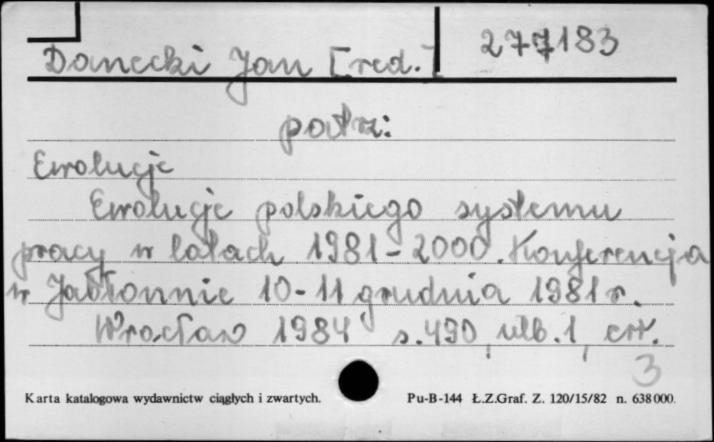 Danecki Jan [red.] 277183
patrz:
Ewolucje
Ewolucje polskiego systemu
pracy w latach 1981-2000. Konferencja
w Jabłonnie 10-11 grudnia 1981 r.
Wrocław 1984 s. 490, nlb. 1, err.
3
Karta katalogowa wydawnictw ciągłych i zwartych. Pu-B-144 Ł.Z.Graf. Z. 120/15/82 n. 638000.